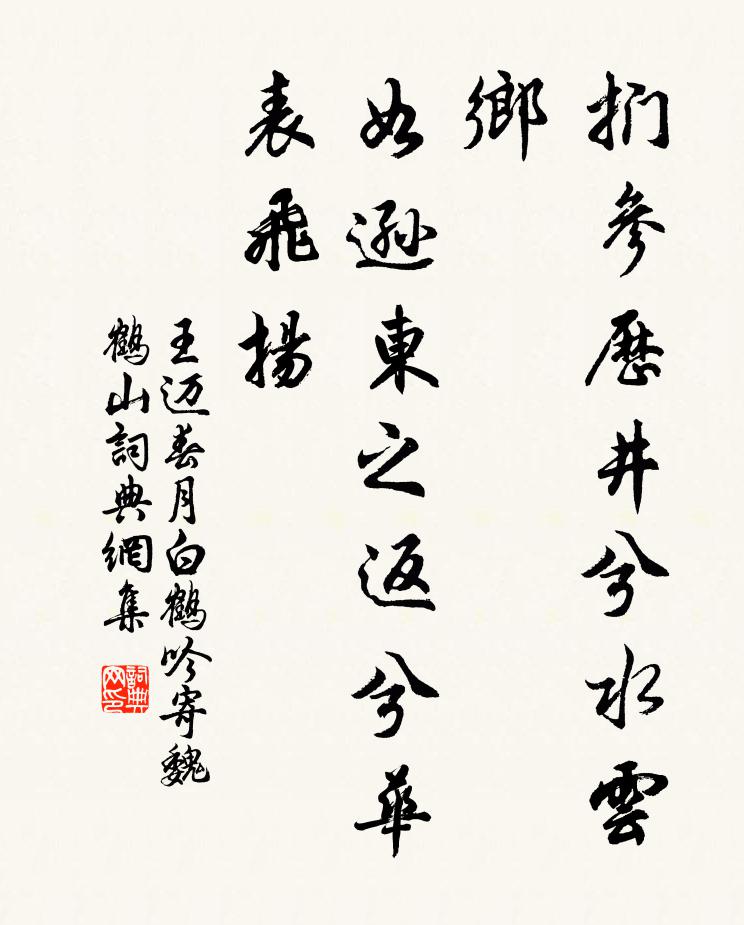 捫參歷井兮水雲
鄉
如遜東之返兮華
表飛揚
王迈春月白鶴吟寄魏
鶴山詞典網集
詞典网印